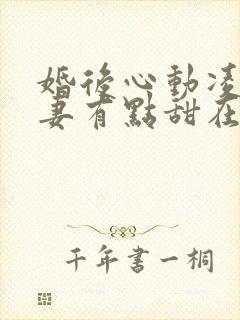 婚後心動凌
妻有點甜在
千年書一桐